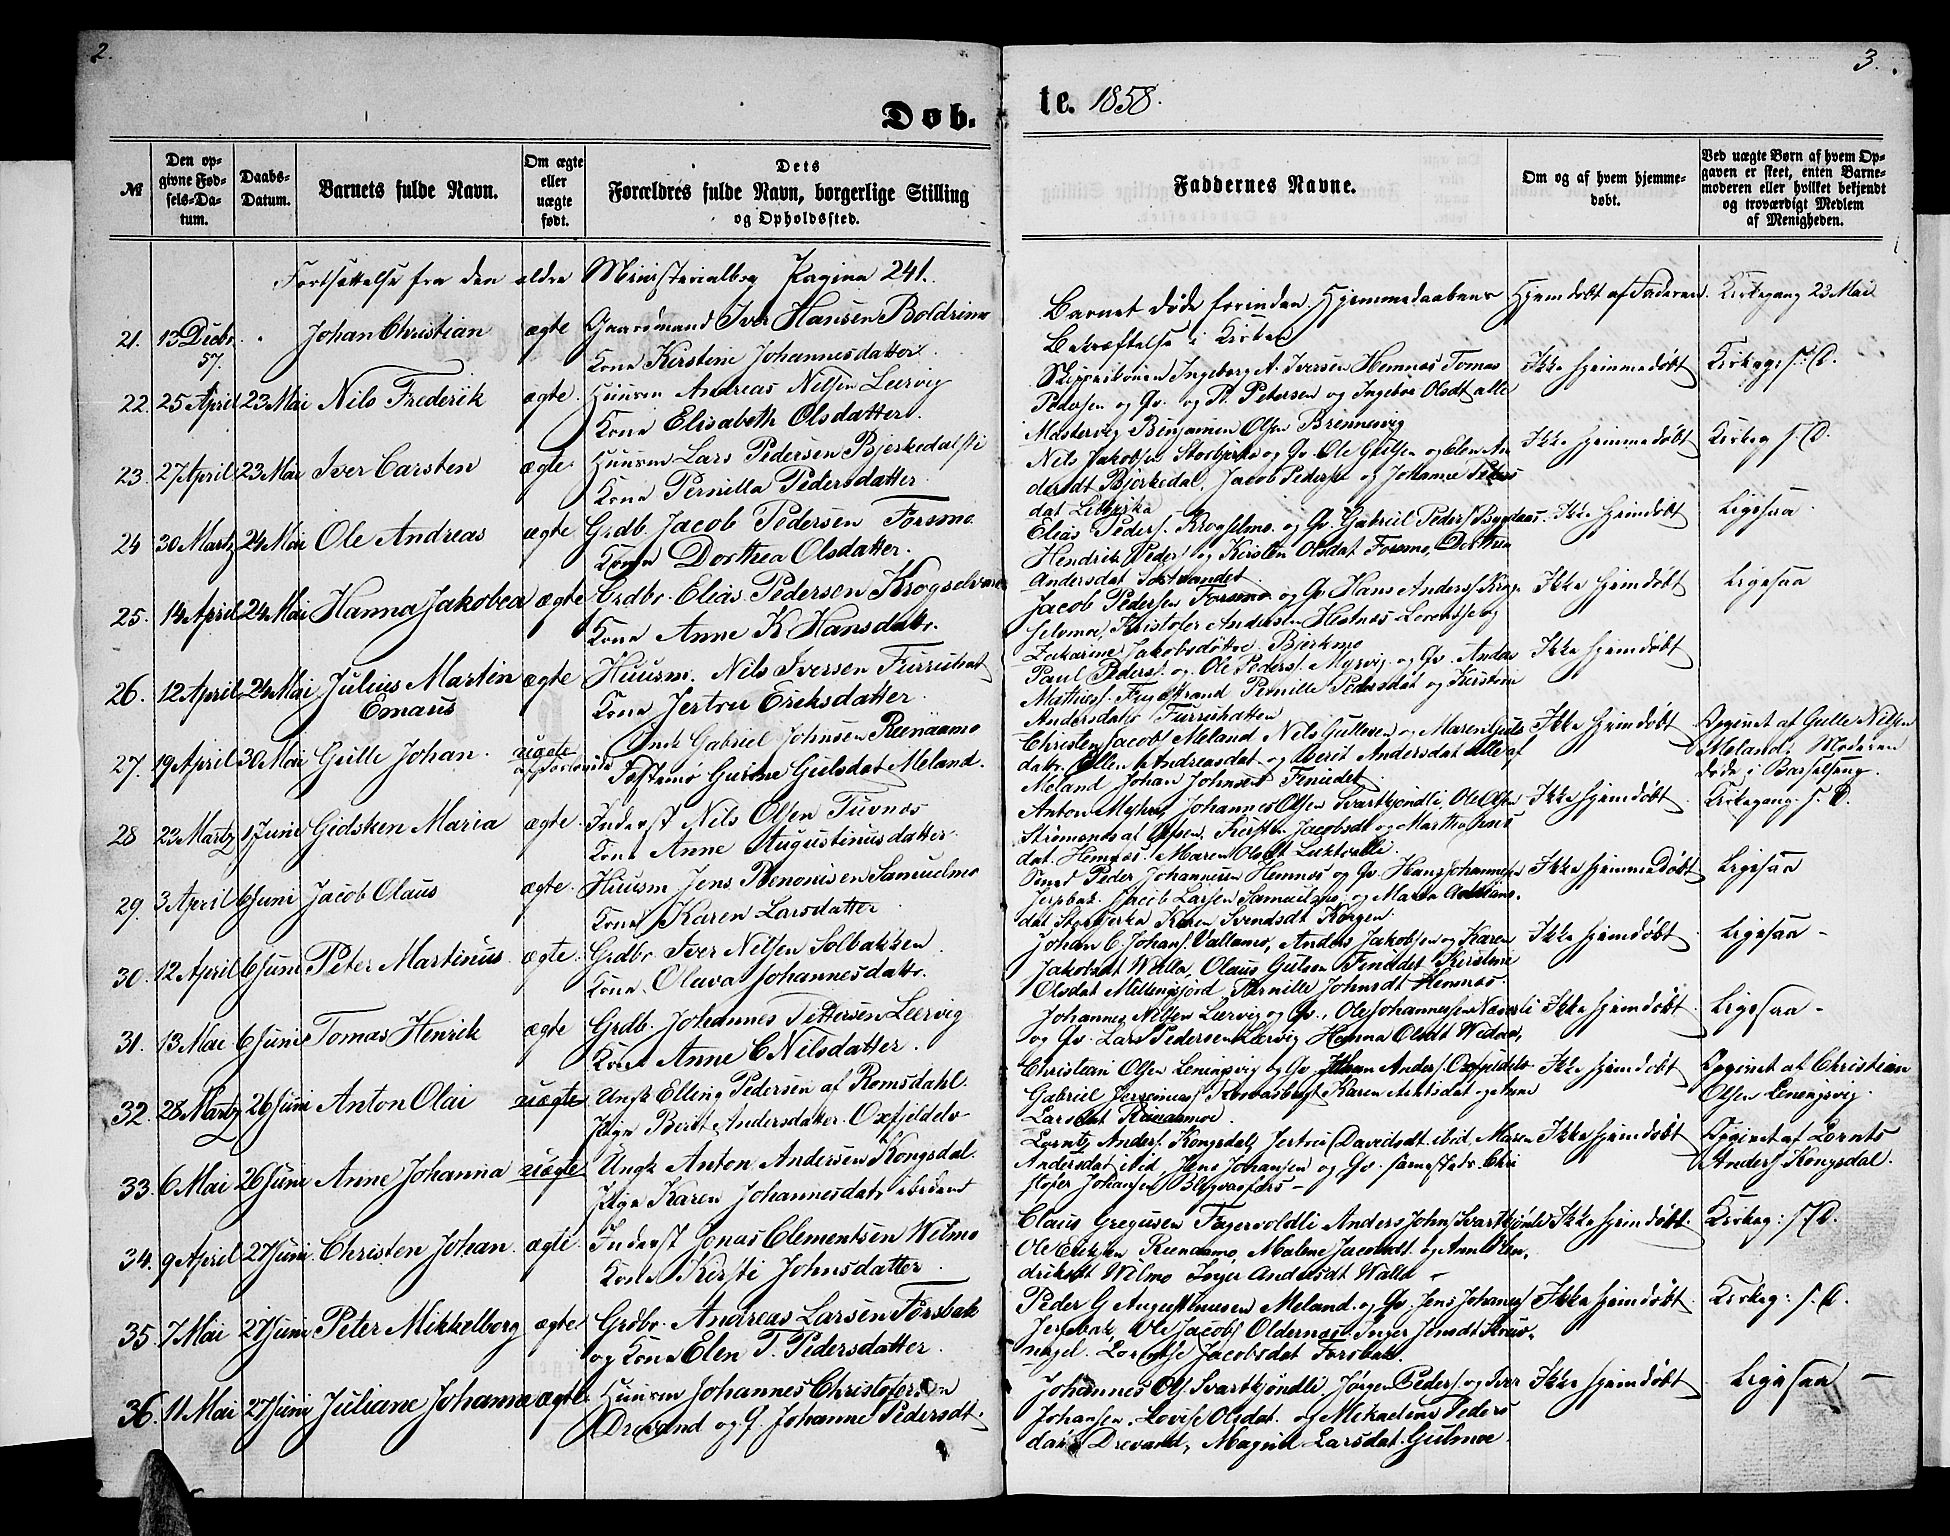 2.
3.
Døb.
te. 1858.
№
Den op-
givne Fød-
sels-Da-
tum.
Daabs-
Datum.
Barnets fulde Navn.
Om ægte
eller
uægte
født.
Dets
Forældres fulde Navn, borgerlige Stilling
og Opholdssted.
Faddernes Navne.
Om og af hvem hjemme-
døbt.
Ved uægte Børn af hvem Op-
gaven er skeet, enten Barne-
moderen eller hvilket bekjendt
og troværdigt Medlem
af Menigheden.
Fortsættelse fra den ældre Ministerialbog Pagina 241.
21. 13 Decbr 57. Johan Christian ægte Gaardmand Iver Hansen Boldrimo
Kone Kirstine Johannesdatter.
Barnet døde forinden Hjemmedaabens
Bekræftelse i Kirken
Hjemdøbt af Faderen. Kirkegang 23 Mai
22. 25 April 23 Mai Nils Frederik ægte. Huusm Andreas Nilsen Leervig
Kone Elisabeth Olsdatter.
Ingeborg A. Iversen Hemnæs Tomas
Pedersen og Qv. og P. Petersen og Ingebor Olsdt alle
Mastervig Benjamin Olsen Brennevig
Ikke hjemmedøbt Kirkeg: s. D.
23. 27 April 23 Mai Iver Carsten ægte. Huusm Lars Pedersen Bjerkedal
Kone Pernilla Pedersdatter.
Nils Jakobsen Storbjerka og Qv Ole
Bjerkedal, Jacob Pedersen og Johanne Peders
dat
Ikke hjemmedøbt Kirkeg s. D.
24 30 Martz 24 Mai Ole Andreas ægte Grdb. Jacob Pedersen Forsmo
Kone Dorthea Olsdatter.
Elias Peders. og Qv. Gabriel Peders
Hendrik Peders og Kirsten Olsdat Forsmo, Dorthea
Andersdat
Ikke hjemdøbt Ligesaa.
25. 14 April 24 Mai Hanna Jakobea ægte Grdbr. Elias Pedersen
Kone Anne K Hansdatr.
Jacob Pedersen Forsmo og Qv Hans Anders
Kristofer Andersen Hestnæs Lorentse og
Zakarine Jakobsdøttre Bjerkmo
Ikke hjemdøbt Ligesaa
26. 12 April 24 Mai Julius Martin
Emaus
ægte Huusm. Nils Iversen Furruhat
Kone Jertru Eriksdatter.
Paul Peders. og Ole Peders. Myrvig og Qv. Andas
Mathias. Pernille Pedersdat og Kirstine
Andersdatr Furruhatten
Ikke hjemdøbt
27. 19 April 30 Mai Gulle Johan. uægte Ungk Gabriel Johnsen Reenaamo
Gurine Gulsdat Meland.
Christen Jacobs. Meland Nils Gullesen og Maren Guls
datr. Ellen Andreasdat og Berit Andersdat alle af
Meland Johan Johnsen Finiedet.
Ikke hjemdøbt Opginet af Gulle Nilsen
Meland. Moderen
døde i Barselseng.
28 23 Martz 1 Juni Gidsken Maria ægte. Inderst Nils Olsen Tuvnæs
Kone Anne Augustinusdatter.
Anton Johannes Olsen Svartkjøndli, Ole Olsen
Jacobsdt og Martha
dat Hemnæs. Maren Olsdt
Ikke hjemdøbt. Kirkegang. s. D.
29. 3 April 6 Juni Jacob Olaus ægte. Huusm Jens Benonisen Samuelmo
Kone Karen Larsdatter.
Smed Peder Johannesen Hemnæs og Qv. Hans Johannesen
Jerpbak. Jacob Larsen Samuelmo, og
dat Storbjerka Karen Svendsdt Korgen.
Ikke hjemmedøbt Ligesaa
30. 12 April 6 Juni Peter Martinus ægte. Grdbr Iver Nilsen Solbakken.
Kone Oluva Johannesdatr.
Johan C. Johans. Vallamo, Anders Jakobsen og Karen
Jakobsdt Walla, Olaus Gulsen Finiedet Kirstine
Olsdat Pernille Johnsdt Hemnæs.
Ikke hjemdøbt Ligesaa -
31. 13 Mai 6 Juni Tomas Henrik ægte Grdb. Johannes Pettersen Leervig
Kone Anne C Nilsdatter.
Johannes Nilsen Leervig og Qv., Ole Johannessen
og Qv. Lars Pedersen Lærvig Hanna Olsdt
Ikke hjemdøbt Ligesaa -
32. 28 Martz 26 Juni Anton Olai uægte. Ungk Elling Pedersen af Romsdahl.
Pige Berit Andersdatter. Oxfjeldelv
Christian Olsen Leningsvig og Qv Johan Anders. Oxfjeldelv
Gabriel Karen og Anne
Larsdat
Ikke hjemdøbt Opginet af Christian
Olsen Leningsvig.
33. 6 Mai 26 Juni Anne Johanna uægte Ungk Anton Andersen Kongsdal.
Pige Karen Johannesdatr ibidem
Lorntz Anders. Kongsdal, Jertru Davidsdt ibid. Maren
Andersdat ibid Jens Johansen og Qv. sammesteds. Chri
stofer Johansen
Ikke hjemdøbt Opginet af Lornts
Anders Kongsdal.
34. 9 April 27 Juni. Christen Johan. ægte. Inderst Jonas Clementsen Wilmo
Kone Kirsti Johnsdatter.
Claus Gregusen Fagervoldli Anders Johns Svartkjønli
Ole Eriksen Reenaamo, Malene Jacobsdt. og
driksdt Wilmo Inger Andersdt Walla -
Ikke hjemdøbt. Kirkeg: s. D.
35 7 Mai 27 Juni Peter Mikkelborg ægte. Grdbr. Andreas Larsen Forsbak
og Kone Elen T. Pedersdatter.
Peder G Augustinusen Meland og Qv. Jens Johannes
Jerpbak, Ole Jacobs Oldernæs. Inger Jensdt
nagel. Lorentse Jacobsdat Forsbak.
Ikke hjemdøbt. Kirkeg: s. D.
36. 11 Mai 27 Juni Juliane Johanna ægte. Huusm Johannes Christofersen
Drevand og Q. Johanne Pedersdt.
Johannes Ols. Svartkjøndli, Jørgen Peders. og Iver
Johansen, Lovise Olsdat. og Mekaeline Peders
datr Drevand, Magnil Larsdat. Gulmoe.
Ikke hjemdøbt Ligesaa -